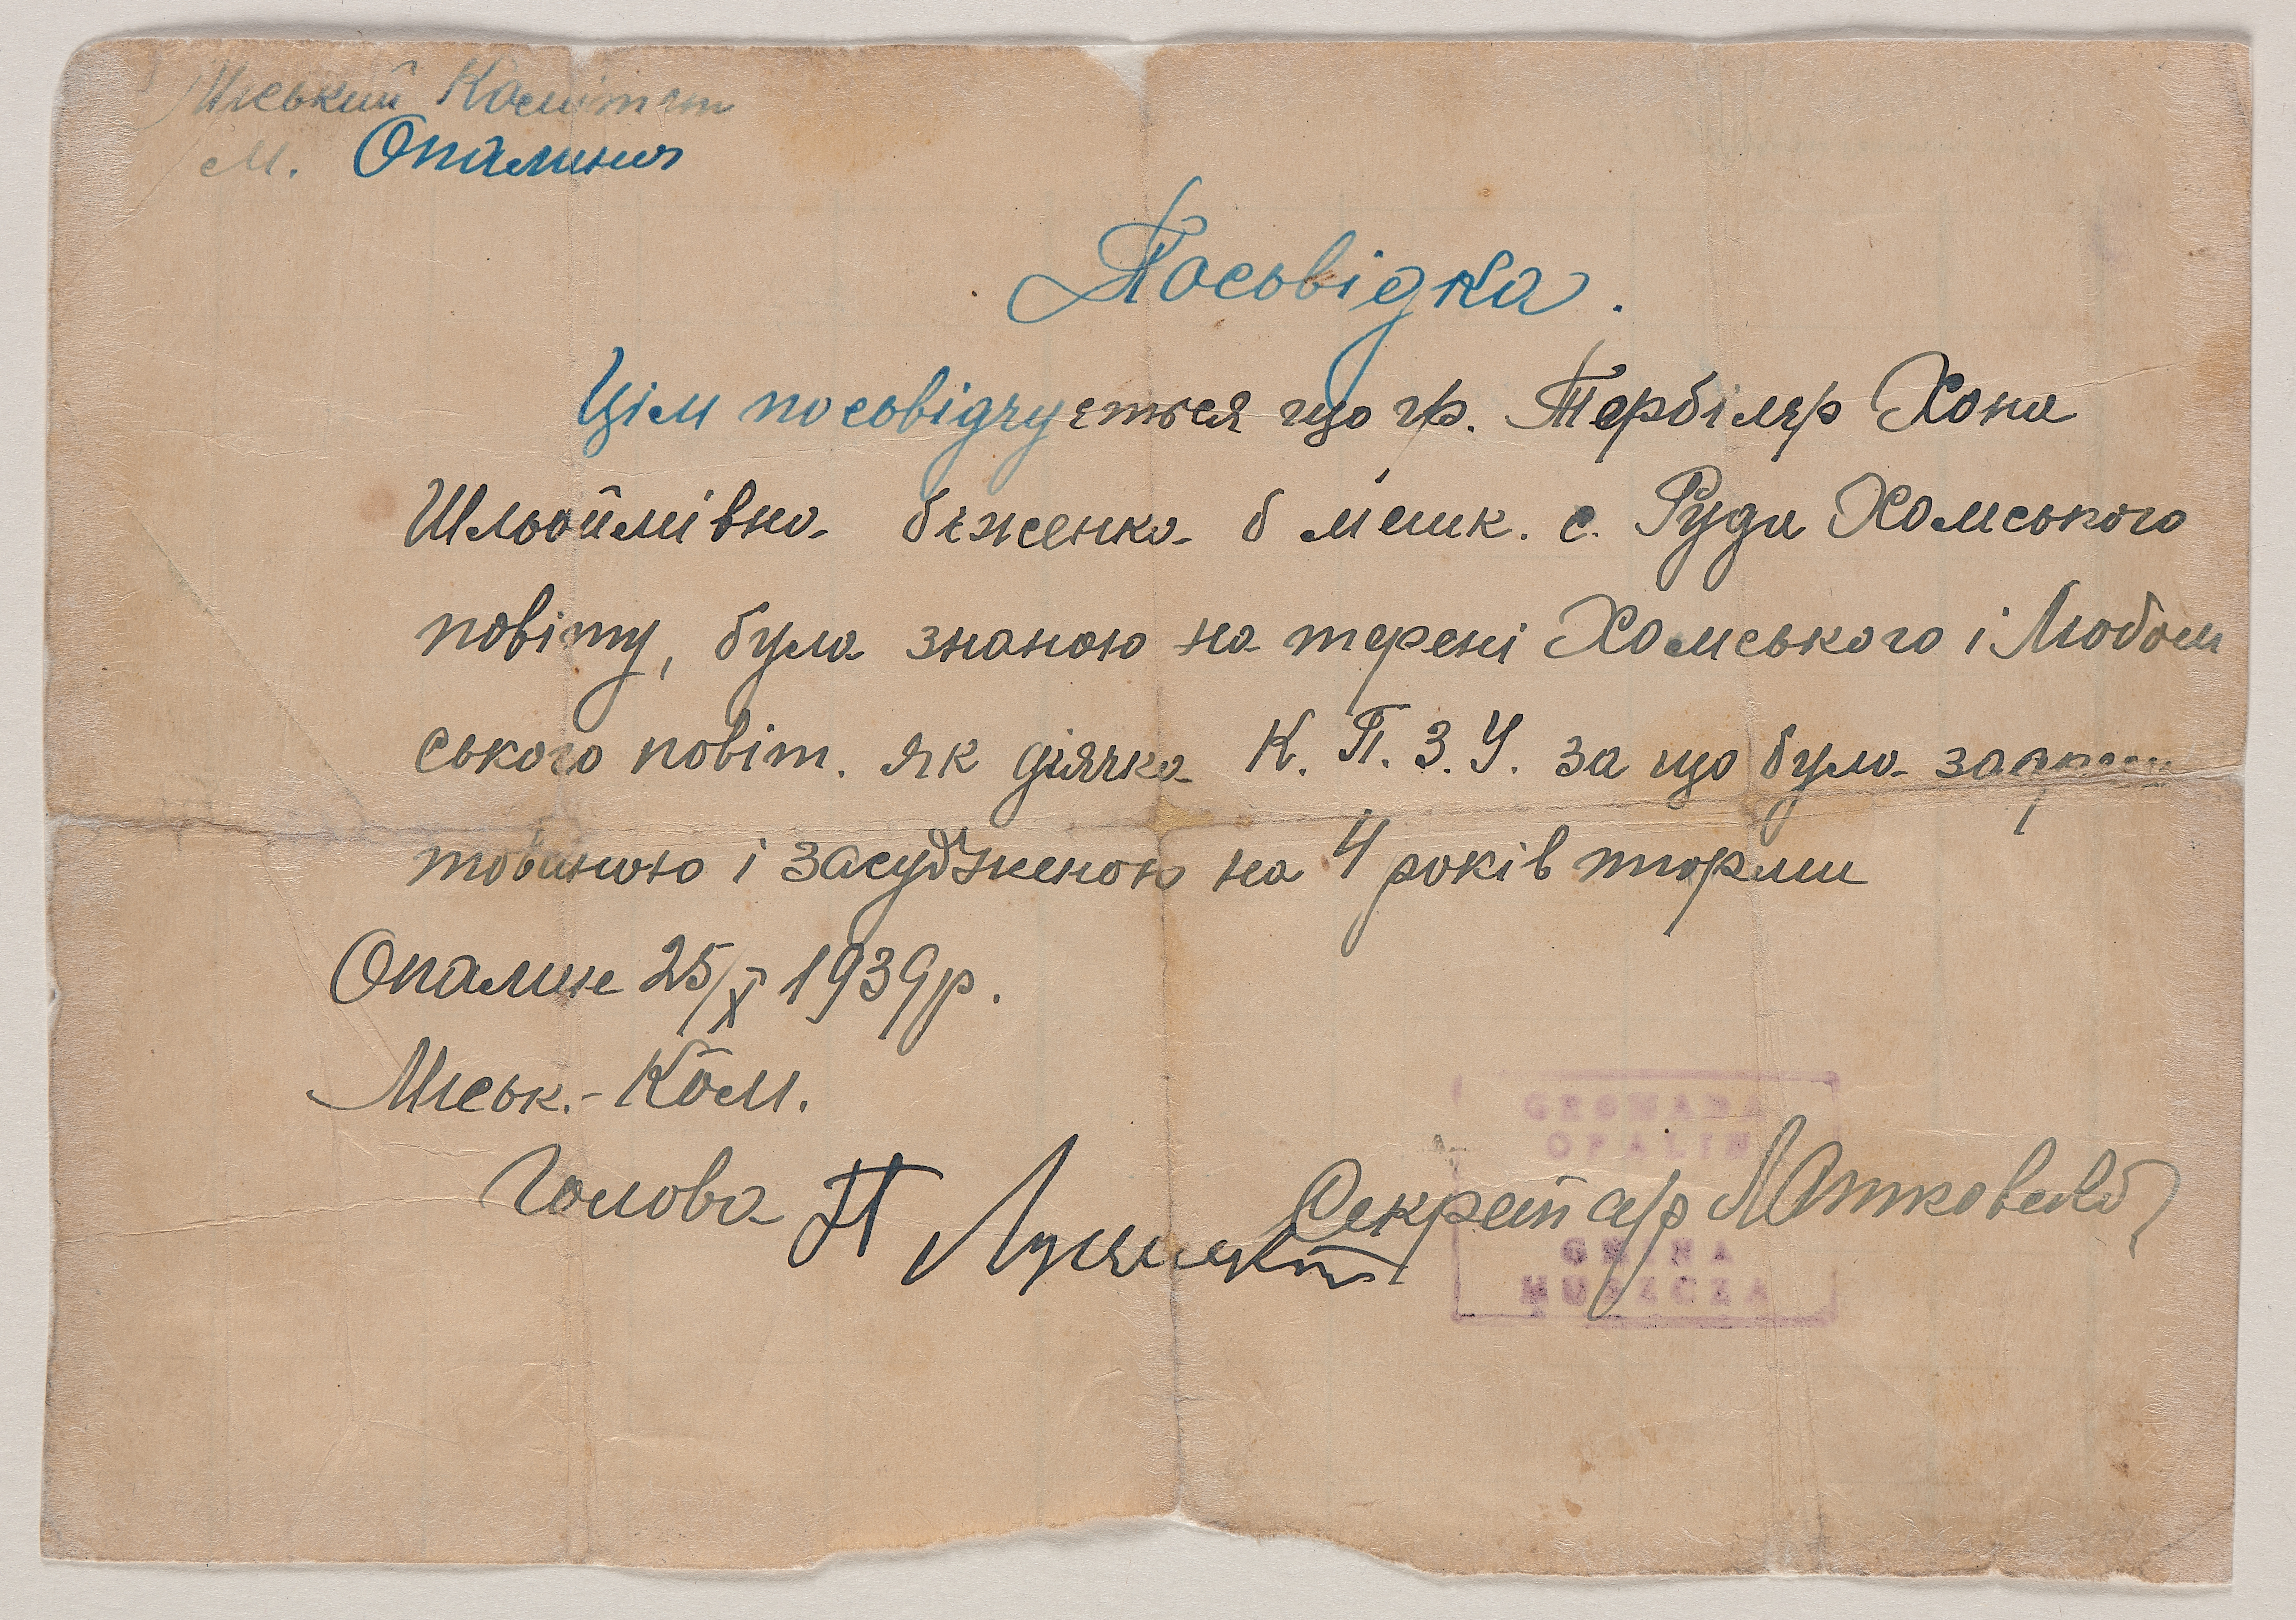 Міський Комітет
м. Опалиня
Посьвідка.
Цім посьвідчується що гр. Тербіляр Хона
Шльоймівна біженка б мешк. с. Руда Холмського
повіту, була знаною на терені Холмського і Любом
ського повіт. як діячка К. П. З. У. за що була заареш
тованою і засудженою на 4 років тюрми
Опалин 25/X 1939р.
Міськ.-Ком.
Голова П
Секретар
GROMADA
OPALIN
GMINA
HUSZCZA